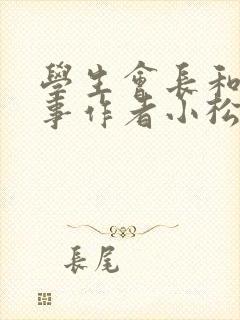 學生會長和
事作者小松
長尾